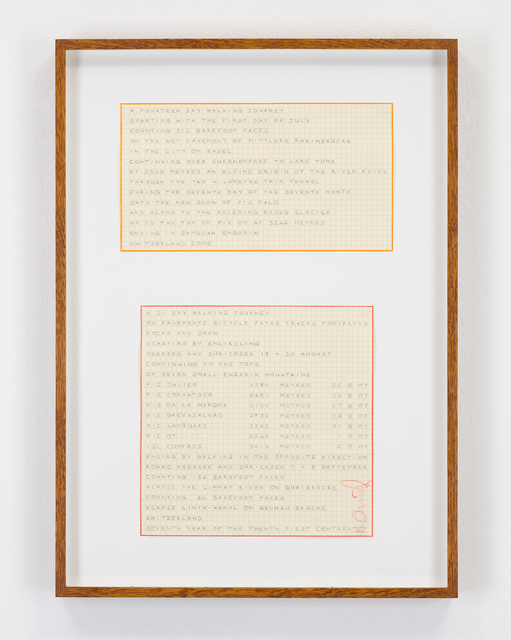 A FOURTEEN DAY WALKING JOURNEY
STARTING WITH THE FIRST DAY OF JULY
COUNTING 212 BAREFOOT PACES
ON THE WET PAVEMENT OF MITTLERE RHEINBRÜCKE
IN THE CITY OF BASEL
CONTINUING OVER SURENENPASS TO LAKE TOMA
AT 2345 METRES AN ALPINE ORIGIN OF THE RIVER RHINE
THROUGH THE TWO KILOMETRE TRIN TUNNEL
DURING THE SEVENTH DAY OF THE SEVENTH MONTH
ONTO THE NEW SNOW OF PIZ PALÜ
AND ALONG TO THE RECEDING ROSEG GLACIER
UP TO THE TOP OF PIZ OT AT 3246 METRES
ENDING IN SAMEDAN ENGADIN
SWITZERLAND
A 21 DAY WALKING JOURNEY
ON PAVEMENTS BICYCLE PATHS TRACKS FOOTPATHS
ROCKS AND SNOW
STARTING BY ENCIRCLING
OBERSEE AND ZÜRICHSEE 19 + 20 AUGUST
CONTINUING TO THE TOPS
OF SEVEN SMALL ENGADIN MOUNTAINS
PIZ JULIER METRES 07
PIZ CORVATSCH 3451 METRES 07
PIZ DA LA MARGNA METRES 27 8 07
PIZ GREVASALVAS 2932 METRES 28 8 07
PIZ LANGUARD 3262 METRES 31 8 07
PIZ OT 3246 METRES 1 9 07
IGL COMPASS METRES 9 07
ENDING BY WALKING IN THE OPPOSITE DIRECTION
ROUND OBERSEE AND ZÜRICHSEE 7 + 8 SEPTEMBER
COUNTING 186 BAREFOOT PACES
ACROSS THE LIMMAT RIVER ON QUAIBRÜCKE
COUNTING 86 BAREFOOT PACES
ACROSS LINTH-KANAL ON GRYNAU BRÜCKE
SWITZERLAND
SEVENTH YEAR OF THE TWENTY FIRST CENTURY